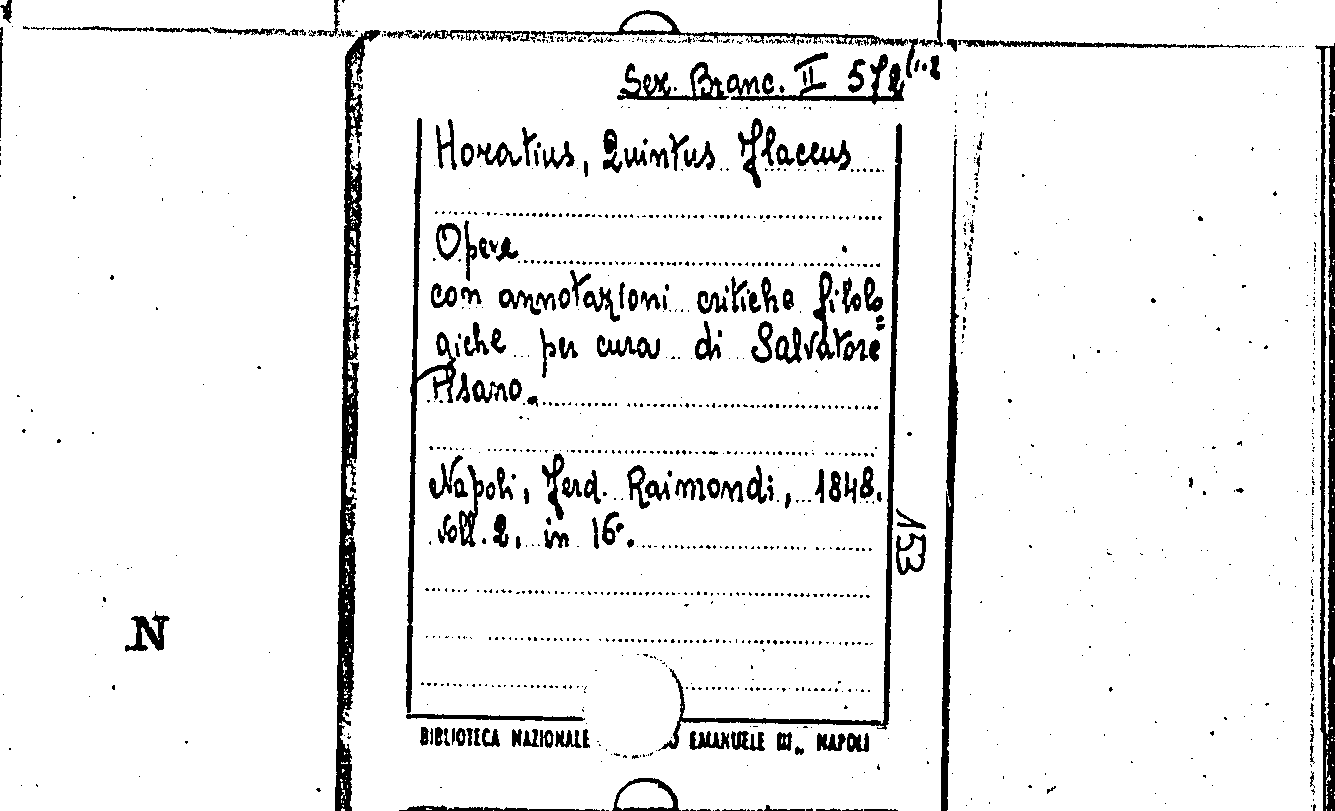 Sez. Branc. II 572 (1-2
Horatius, Quintus Flaccus
Opere
con annotazioni critiche filolo=
giche per cura di Salvatore
Pisano.
Napoli, Ferd. Raimondi, 1848.
voll. 2, in 16°.
153
N
BIBLIOTECA NAZIONALE EMANUELE III„ NAPOLI